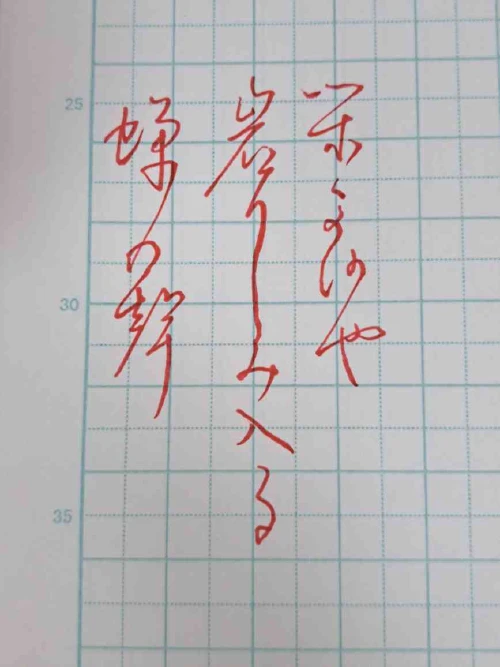 閑さや
岩にしみ入る
蝉の聲
25
30
35